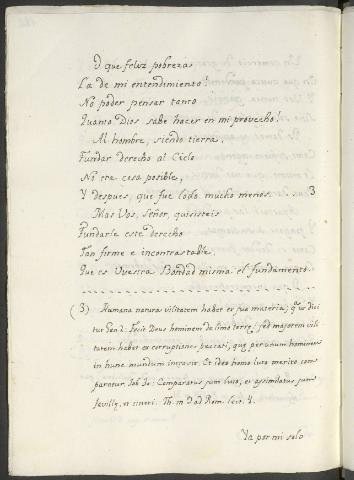 O que feliz pobreza
La de mi entendimiento!
No poder pensar tanto
Quanto Dios sabe hacer en mi provecho!
Al hombre, siendo tierra,
Fundar derecho al Cielo
No era cosa posible,
Y despues, que fue lodo mucho menos. . . . . 3
Mas Vos, Señor, quisisteis
Fundarle este derecho
Tan firme e incontrastable,
Que es Vuestra Bondad misma el fundamento.
(3) Humana natura vilitatem habet ex sue materia; q.e ut dici
tur Gen 2. Fecit Deus hominem de limo terre, sed majorem vili
tatem habet ex corruptione peccati, que per unum hominem
in hunc mundum intravit. Et ideo homo luto merito com
paratur. Job. 30: Comparatus sum luto, et assimilatus sum
faville, et cineri. Th. in D. ad Rom. Lect. 4.
Ya por mi solo